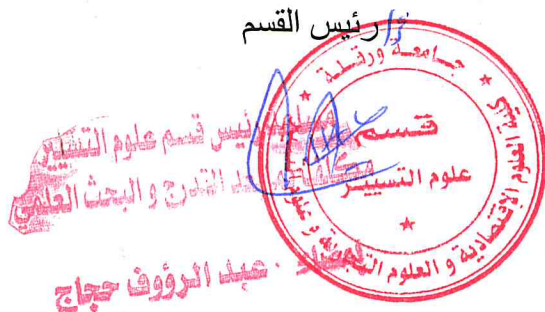 رئيس القسم
جامعة ورقلة
كلية العلوم الإقتصادية و العلوم التجارية و علوم
قسم
علوم التسيير
رئيس قسم علوم التسيير
التدرج و البحث العلمي
عبد الرؤوف حجاج